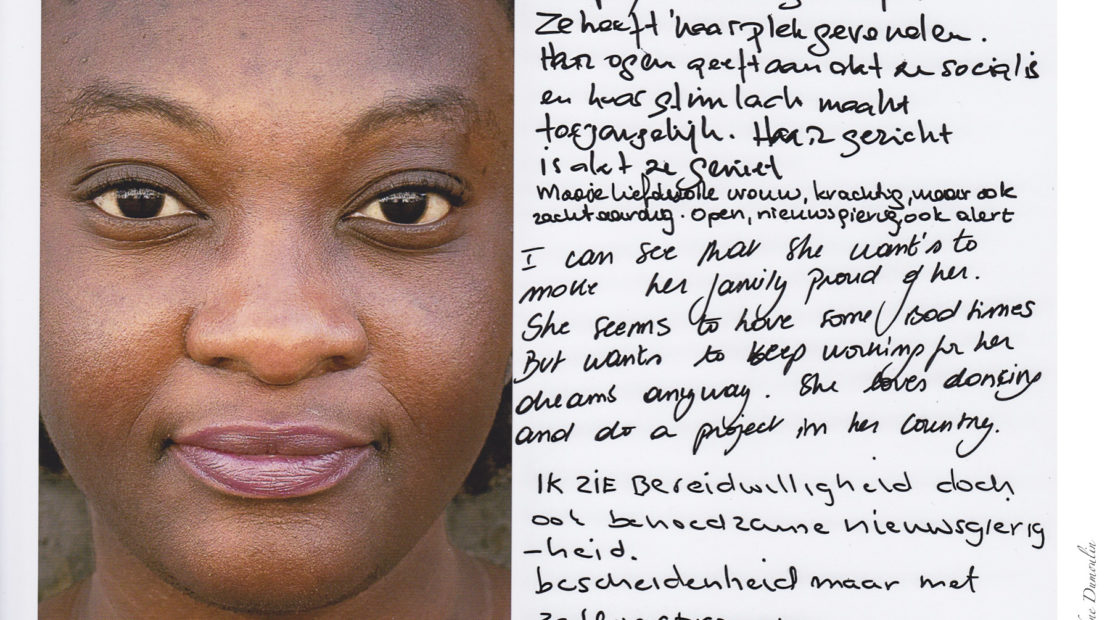 Ze heeft haar plek gevonden.
Haar ogen geeft aan dat ze sociaal is
en haar glimlach maakt
toegangelijk. Haar gezicht
is dat ze geniet
Mooie liefdevolle vrouw, krachtig, maar ook
zachtaardig. Open, nieuwsgierig, ook alert
I can see that she want's to
make her family proud of her.
She seems to have some bad times
But wants to keep working for her
dreams anyway. She loves dancing
and do a project in her country.
IK ZIE Bereidwilligheid doch
ook behoedzame nieuwsgierig
-heid.
bescheidenheid maar met
Dumoulin